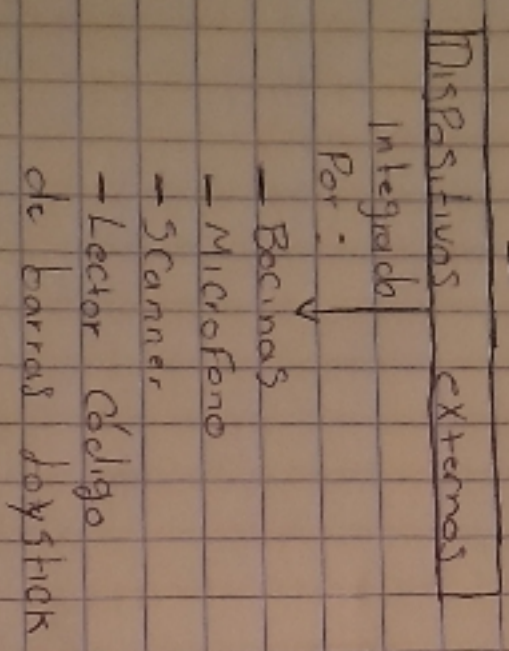 Dispositivos externos
Integrado
Por:
- Bocinas
- Microfono
- Scanner
- Lector Código
de barras Joystick